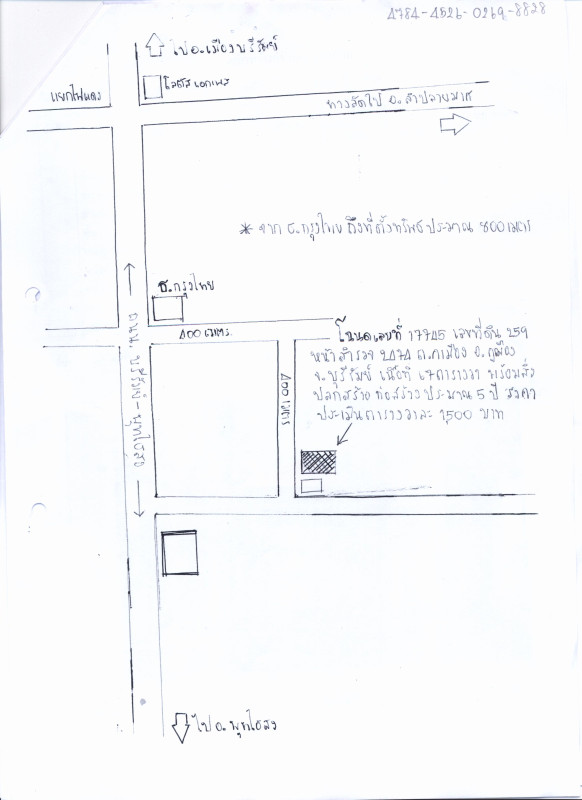 4784-4526-0269-8828
ไป อ.เมืองบุรีรัมย์
โลตัส เอกเพรส
แยกไฟแดง
ทางลัดไป อ. ลำปลายมาศ
* จาก ธ.กรุงไทย ถึงที่ตั้งทรัพย์ ประมาณ 800 เมตร
ธ.กรุงไทย
400 เมตร
ถนน บุรีรัมย์ - พุทไธสง
400 เมตร
โฉนดเลขที่ 17745 เลขที่ดิน 259
หน้าสำรวจ 2474 ต.คูเมือง อ.คูเมือง
จ.บุรีรัมย์ เนื้อที่ ตารางวา พร้อมสิ่ง
ปลูกสร้าง ก่อสร้างประมาณ 5 ปี ราคา
ประเมินตารางวาละ 1,500 บาท
ไป อ. พุทไธสง